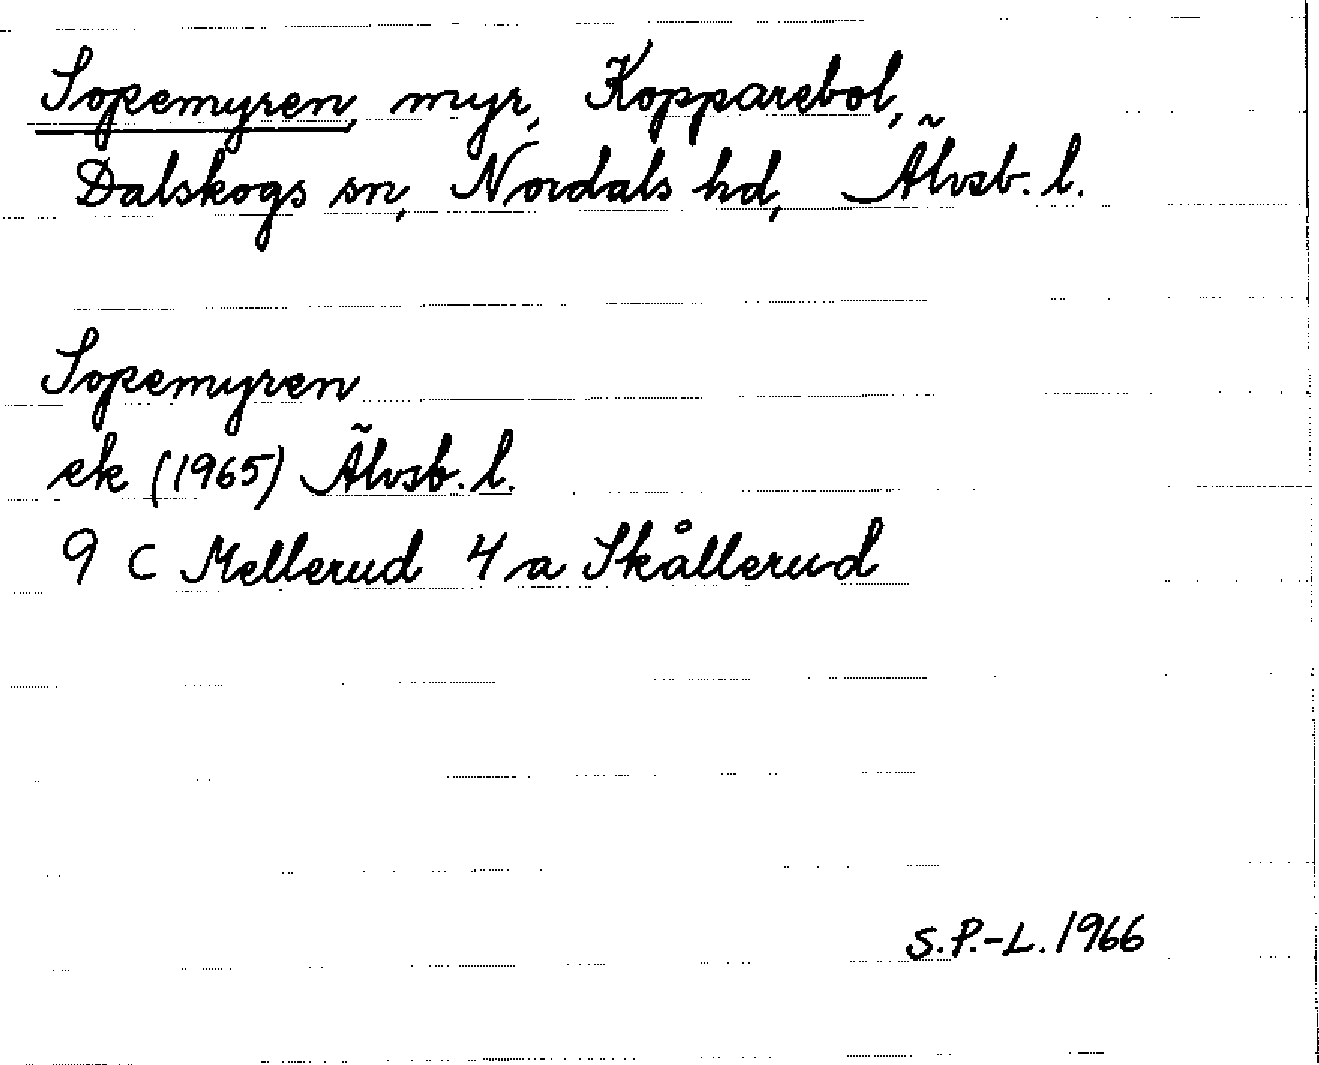 Sopemyren, myr, Kopparebol,
Dalskogs sn, Nordals hd, Älvsb. l.
Sopemyren
ek (1965) Älvsb. l.
9 C Mellerud 4 a Skållerud
S.P.-L. 1966